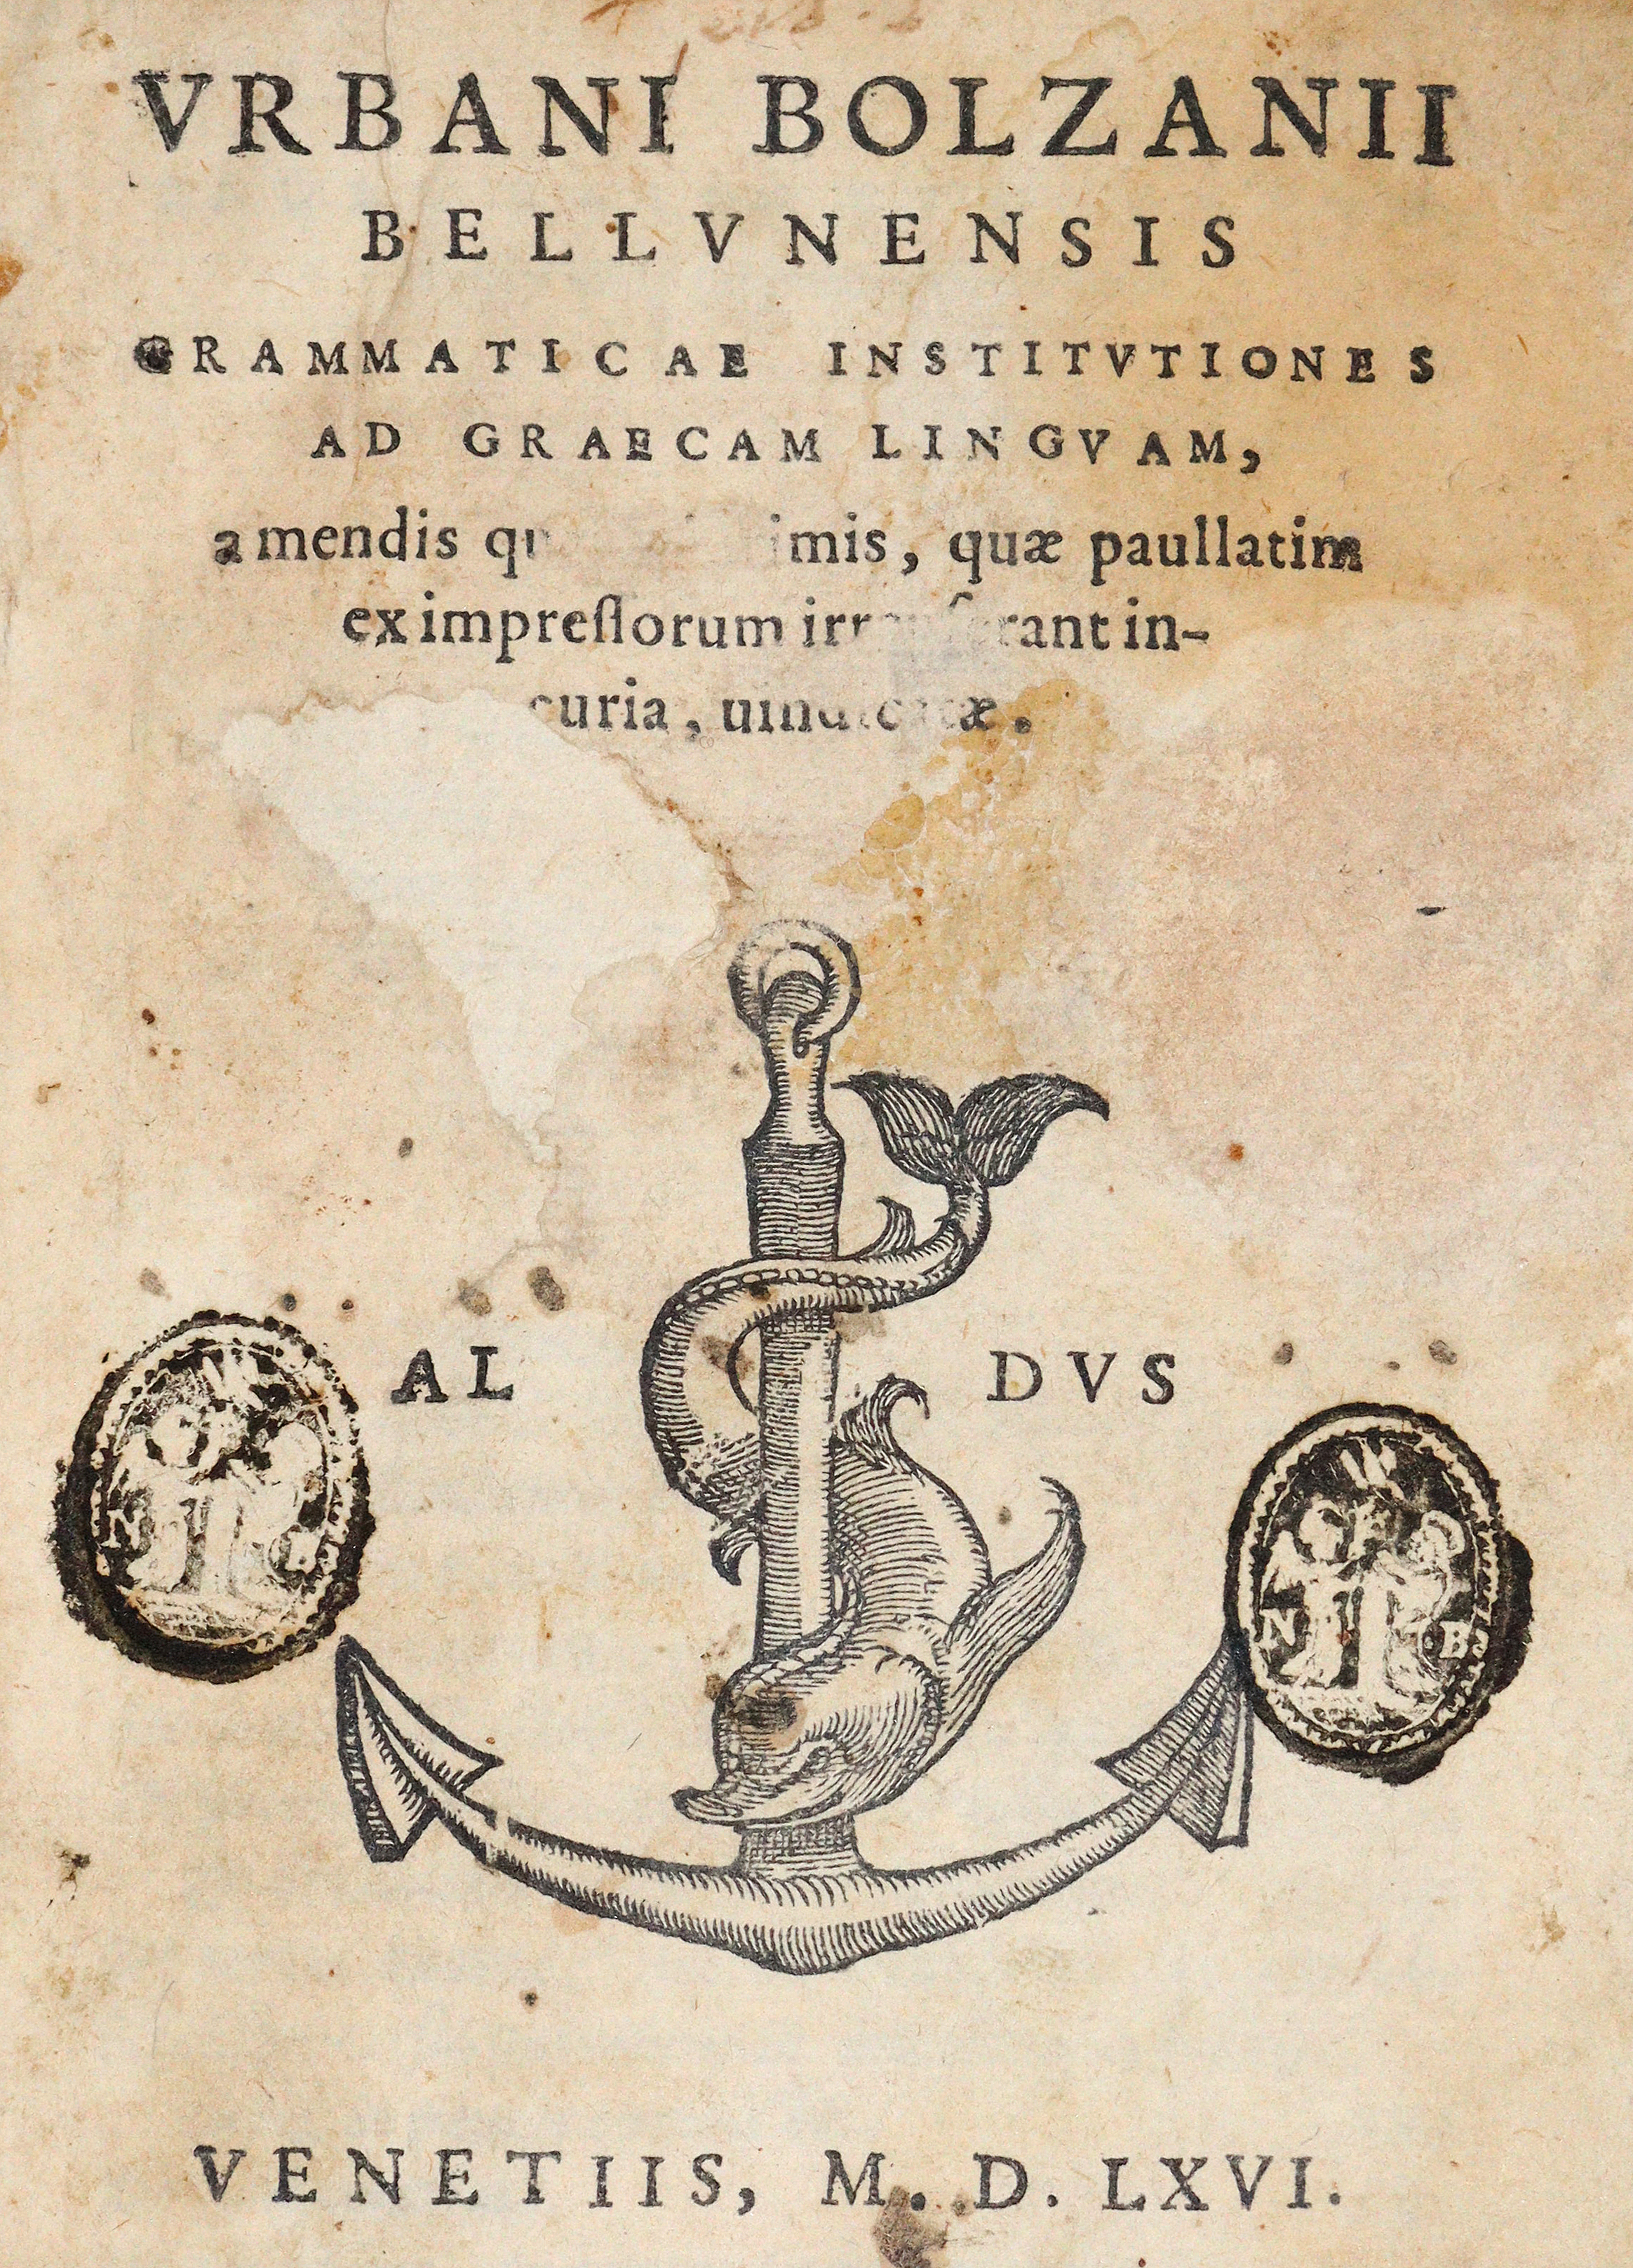 VRBANI BOLZANII
BELLVNENSIS
GRAMMATICAE INSTITVTIONES
AD GRAECAM LINGVAM,
a mendis imis, quæ paullatim
ex impreſſorum in-
curia, uindicatæ.
AL DVS
N B
VENETIIS, M. D. LXVI.